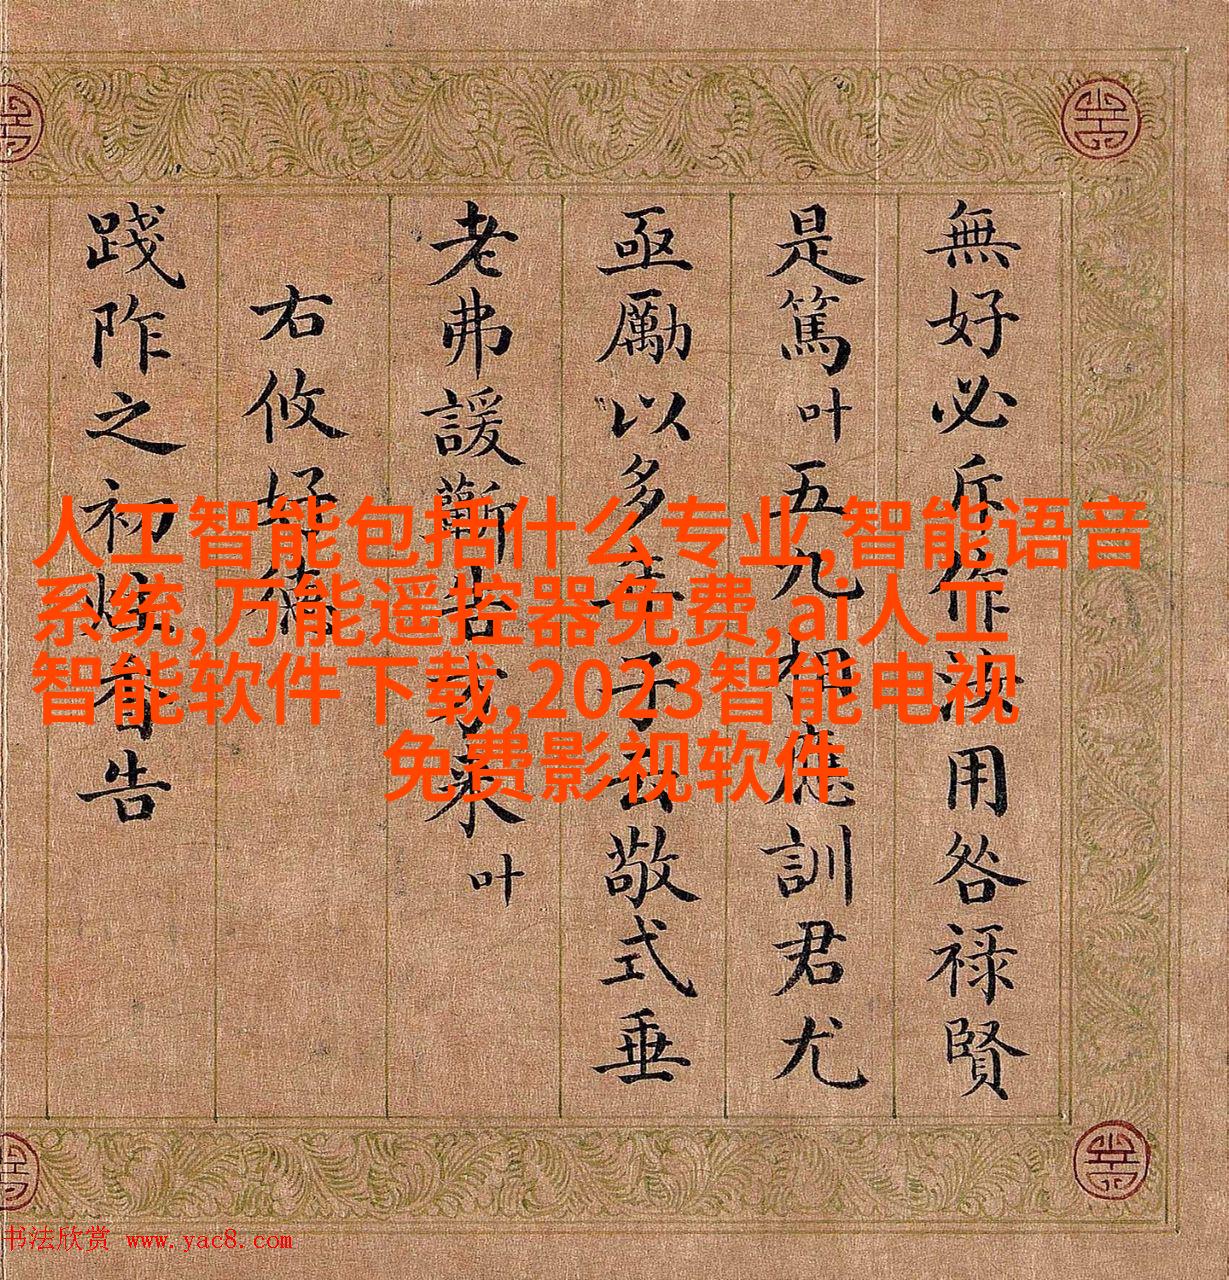 無好必斥作汝用咎祿賢
是篤叶五九相應訓君尤
亟勵以多年敬式垂
老弗諼蘄告我來叶
右攸好德
踐阼之初告
人工智能包括什么专业,智能语音
系统,万能遥控器免费,ai人工
智能软件下载,2023智能电视
免费影视软件
书法欣赏 www.yac8.com